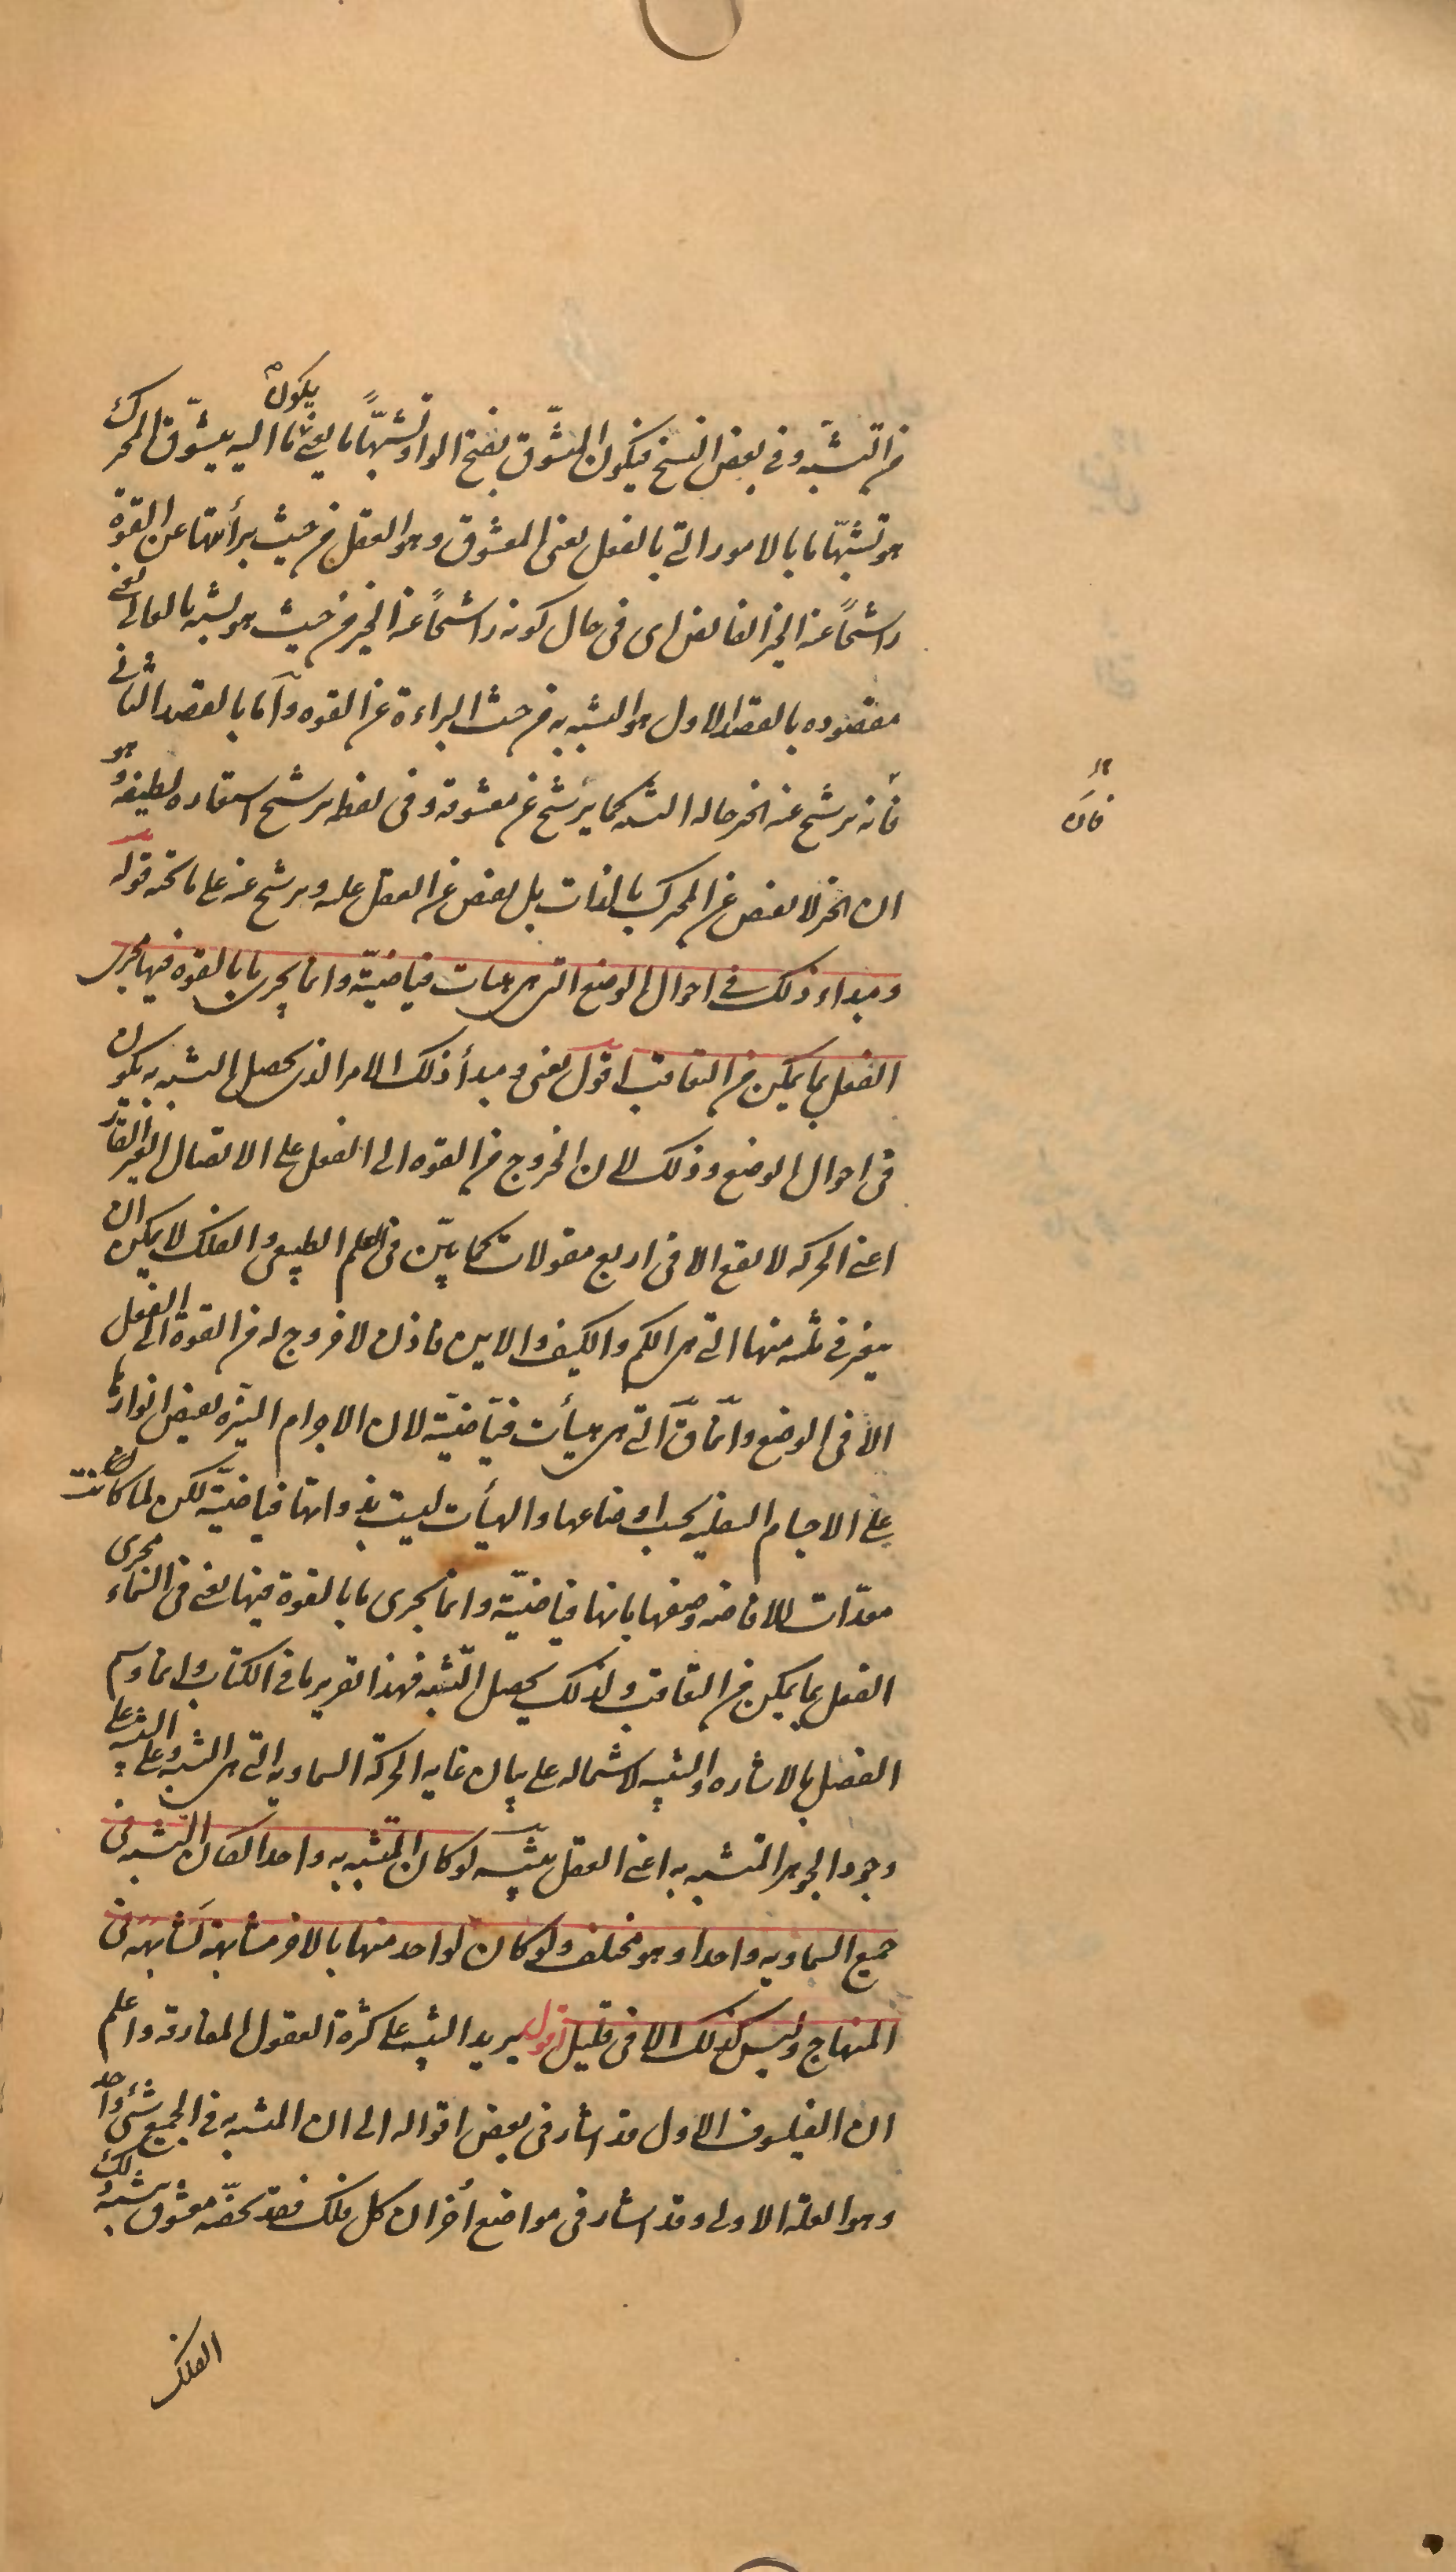 من التشبه وفى بعض النسخ فيكون المتشوق بفتح الواو تشبهاً ما يعنى يكون ما اليه يتشوق المحرك
هو تشبهّا ما بالامور التى بالفعل يعنى المعشوق وهو العقل من حيث برأتها عن القوة
راشحاً عنه الخير الفائض اى فى حال كونه راشحاً عنه الخير من حيث هو تشبه بالعالى يعنى
مقصوده بالقصد الاول هو التشبه به من حيث البراءة عن القوه وأما بالقصد الثانى
فانه يرشح عنه الخير حاله التشبه كما يرشح عن معشوقه وفى لفظ يرشح استعاره لطيفه وهو
فان
ان الخير لا يفيض عن المحرك بالذات بل يفيض عن العقل عليه ويرشح عنه على ما تحته قوله
ومبداء ذلك فى احوال الوضع التى هى هيات فياضيّة وانما يجرى ما بالقوه فيها مجرى
الفعل بما يمكن من التعاقب اقول يعنى ومبدأ ذلك الامر الذى يحصل التشبه به يكون
فى احوال الوضع وذلك لان الخروج من القوه الى الفعل على الاتصال الغير القار
اعنى الحركه لا يقع الا فى اربع مقولات كما بيّن فى العلم الطبيعى والفلك لا يمكن ان
يتغير فى ثلثه منها التى هى الكم والكيف والاين فاذن لا خروج له من القوة الى الفعل
الا فى الوضع وانّما قّ التى هى هيأت فيّاضيّة لان الاجرام النيّره يفيض انوارها
على الاجسام السفليه بحسب اوضاعها والهيأت ليست بذواتها فياضيّة لكن لما كانت
معدّات للافاضه وصفها بانها فياضيّة وانما يجرى ما بالقوة فيها يعنى فى السماء مجرى
الفعل بما يمكن من التعاقب ولذلك يحصل التشبه فهذا تقرير ما فى الكتاب وانما وسم
الفصل بالاشاره والتنبيه لاشتماله على بيان غايه الحركة السماويه التى هى التشبه وعلى التنبيه على
وجود الجوهر المتشبه به اعنى العقل تنبيه لو كان المتشبه به واحدا لكان التشبه فى
جميع السماويه واحدا وهو مختلف ولو كان لواحد منها بالاخر مشابهة لشابهه فى
المنهاج وليس كذلك الا فى قليل اقول يريد التنبيه على كثرة العقول المفارقه واعلم
ان الفيلسوف الاول قد اشار فى بعض اقواله الى ان المتشبه به فى الجميع شئ واحد
وهو العلة الاولى وقد اشار فى مواضع أخر ان كل فلك فقد يخصّه معشوق يشبه ذلك
الفلك